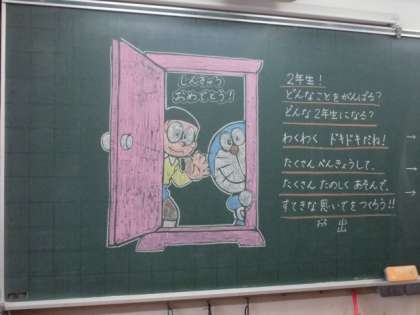 しんきゅう
おめでとう!!
2年生!
どんなことをがんばる?
どんな2年生になる?
わくわく ドキドキだね!
たくさん べんきょうして、
たくさん たのしく あそんで、
すてきな 思いでを つくろう!!
出